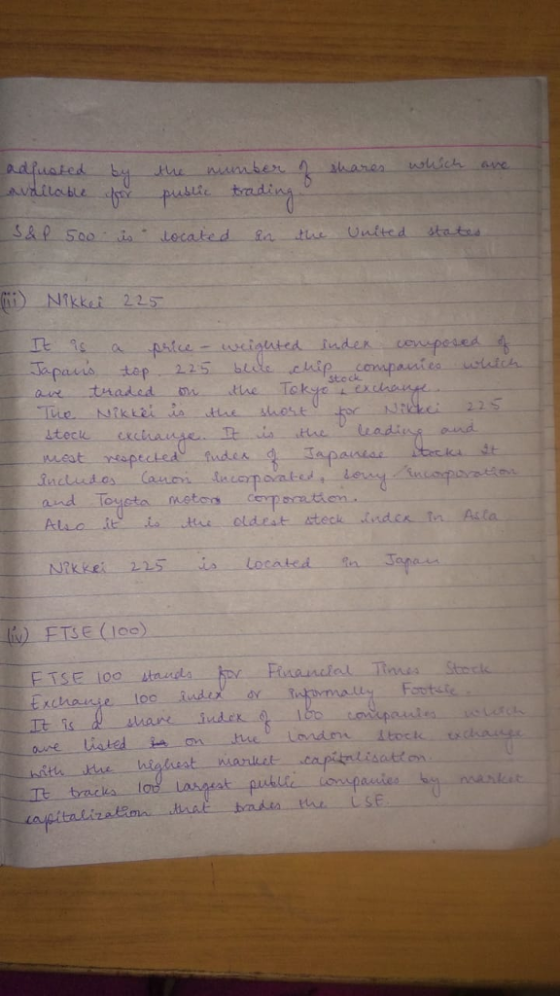 adjusted by the number of shares which are
available for public trading.
S&P 500 is located in the United states
(iii) Nikkei 225
It is a price-weighted index composed of
Japan's top 225 blue chip companies which
are traded on the Tokyo stock exchange.
The Nikkei is the short for Nikkei 225
stock exchange. It is the leading and
most respected index of Japanese stocks it
includes Canon Incorporated, Sony incorporation
and Toyota motors corporation.
Also it is the oldest stock index in Asia
Nikkei 225 is located in Japan
(iv) FTSE (100)
FTSE 100 stands for Financial Times Stock
Exchange 100 index or informally Footsie.
It is a share index of 100 companies which
are listed on the London stock exchange
with the highest market capitalisation.
It tracks 100 largest public companies by market
capitalization that trades the LSE.